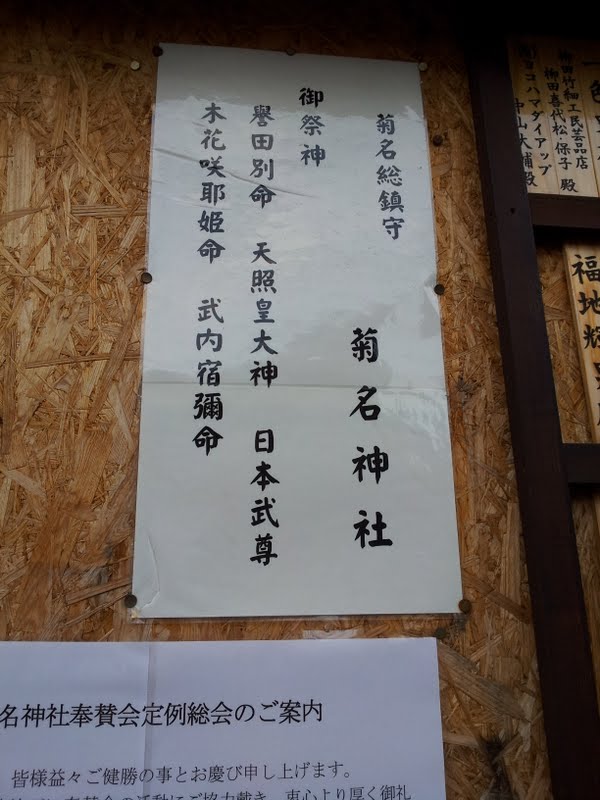 菊名総鎮守
菊名神社
御祭神
譽田別命 天照皇大神 日本武尊
木花咲耶姫命 武内宿彌命
柳田竹細工民芸品店
柳田喜代松・保子殿
ヨコハマダイアップ
中山大輔殿
福地輝
名神社奉賛会定例総会のご案内
皆様益々ご健勝の事とお慶び申し上げます。
の活動にご協力戴き、衷心より厚く御礼